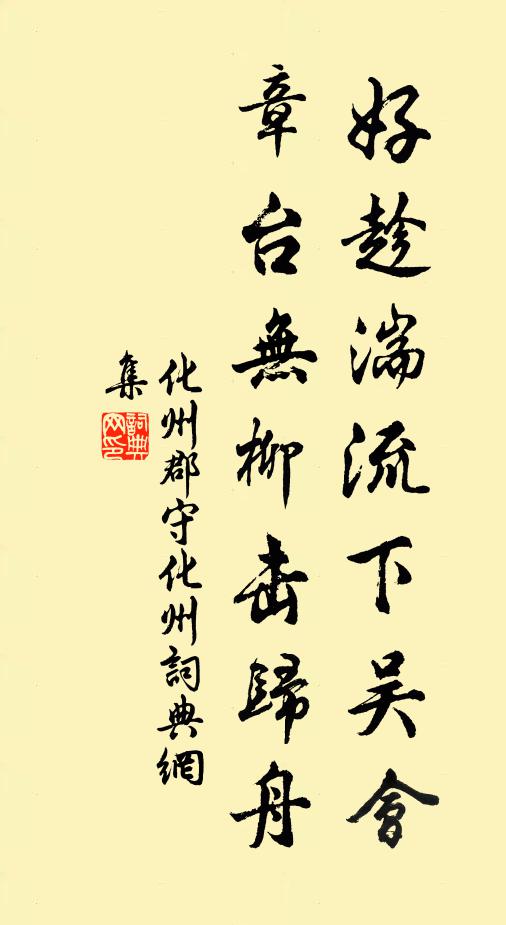 好趁湍流下吴會
章台無柳击歸舟
化州郡守化州詞典網
集
詞典網印